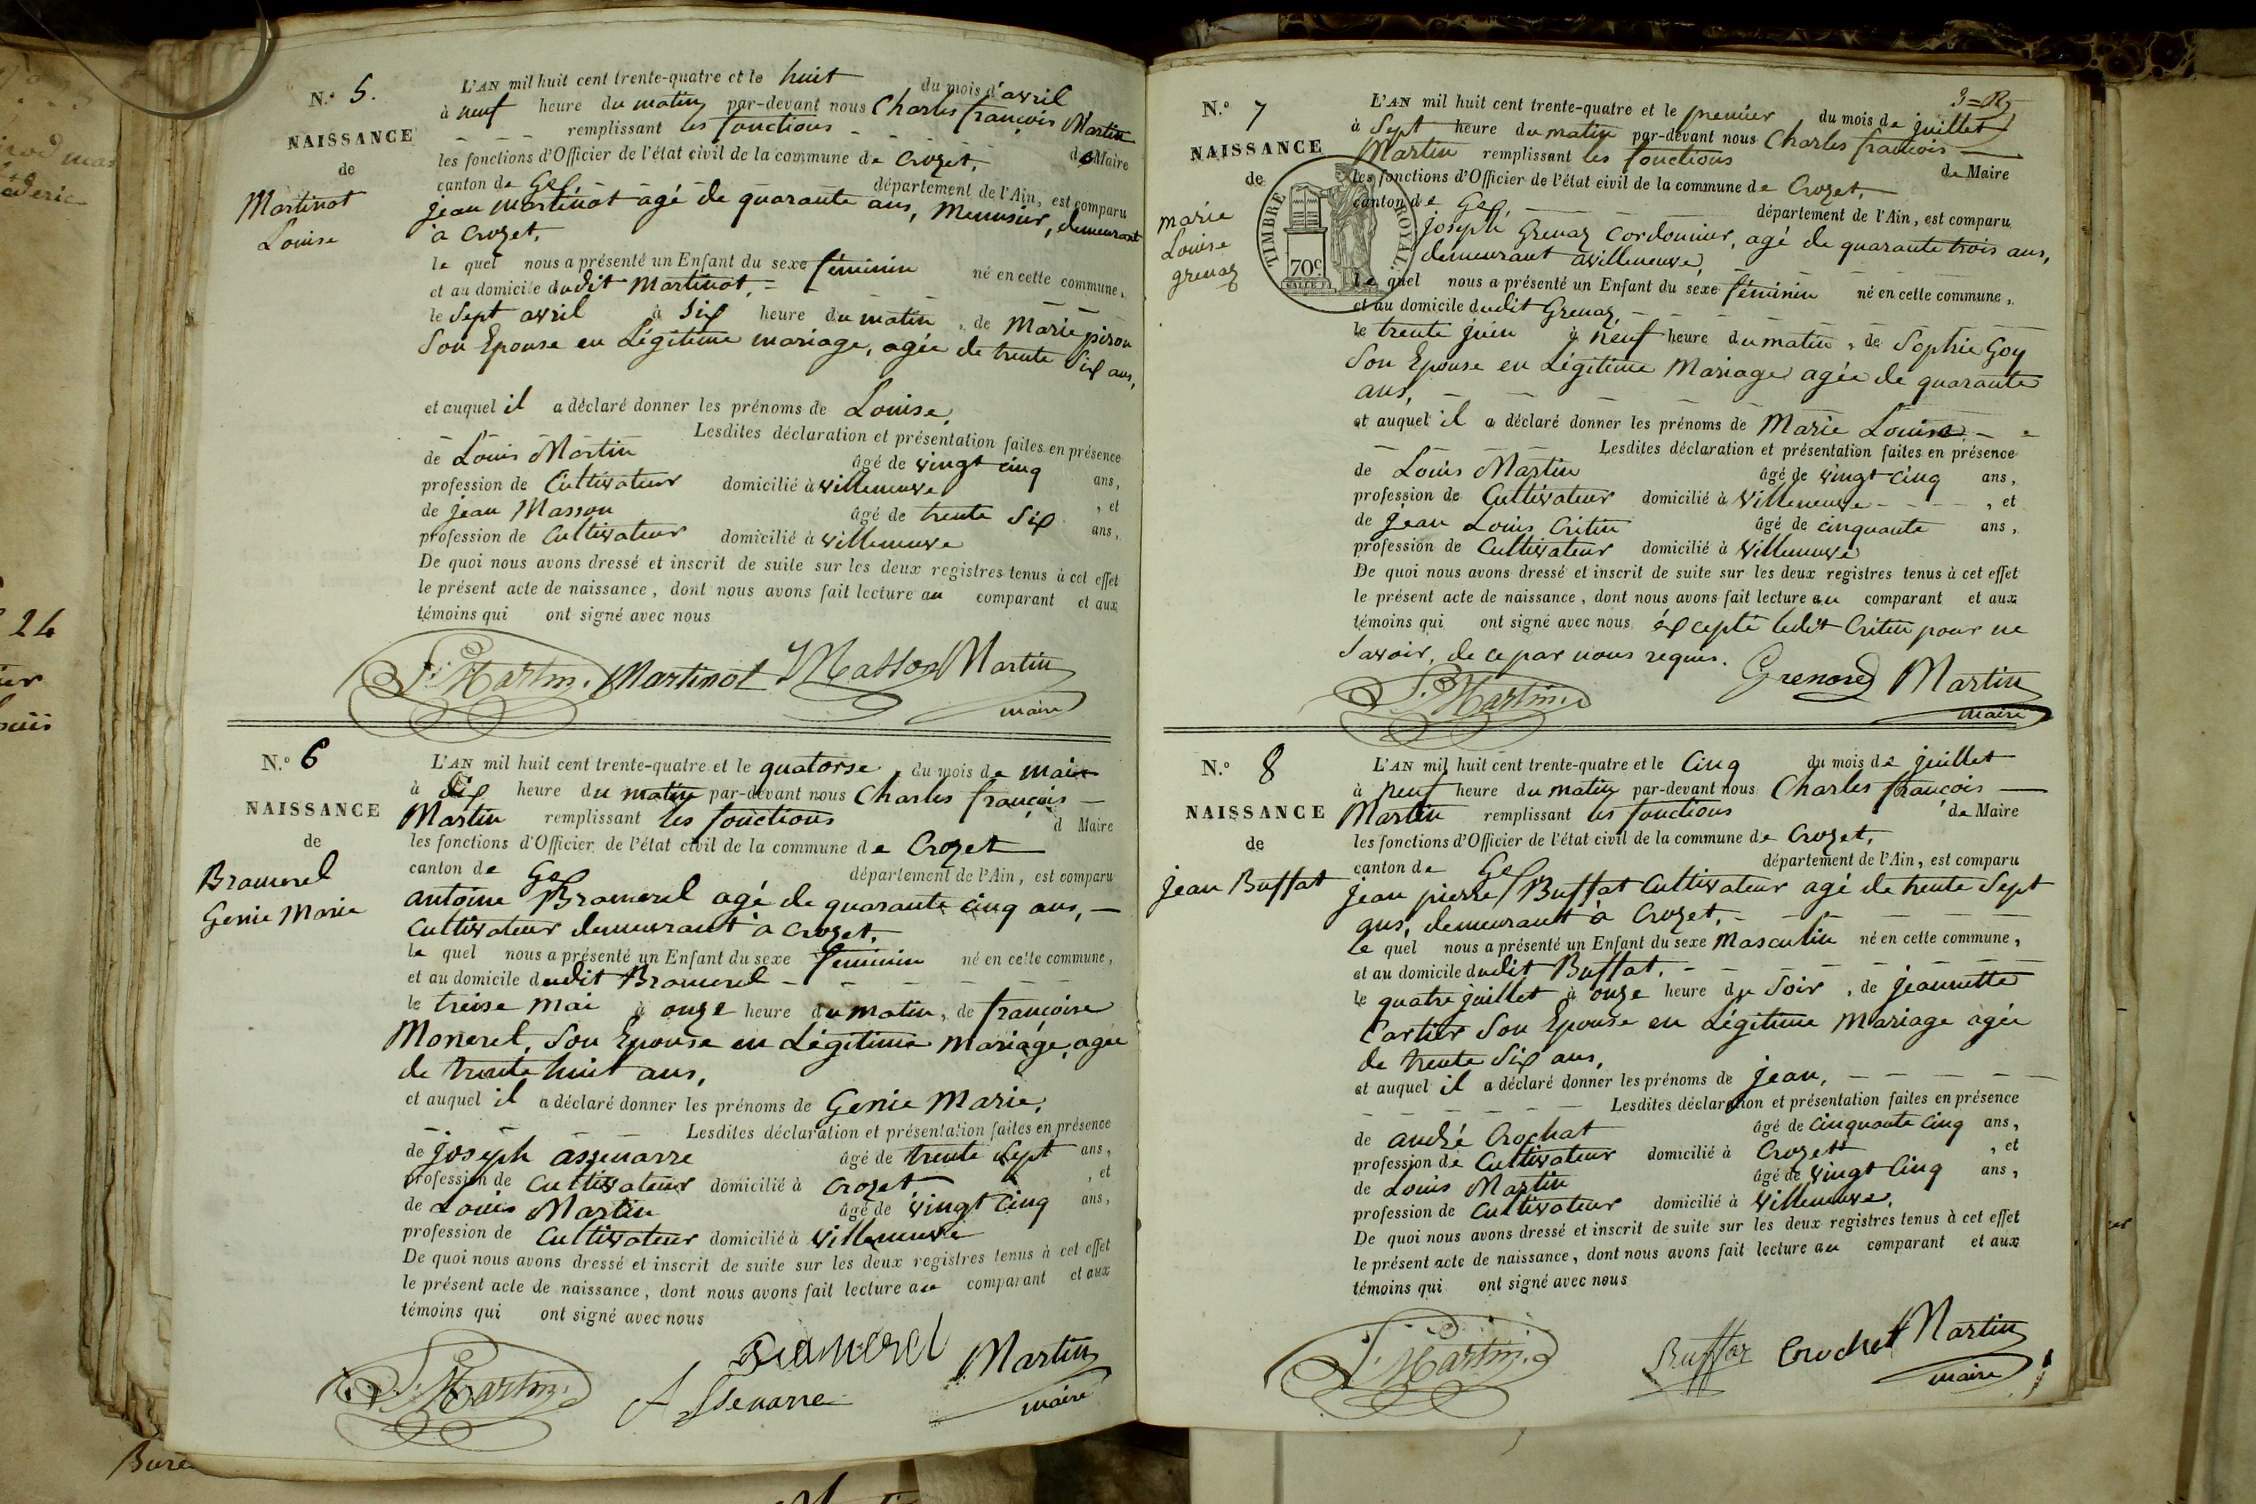 N.º 5.
NAISSANCE
de
Martinot
Louise
L'AN mil huit cent trente-quatre et le huit du mois d'avril
à neuf heure du matin par-devant nous Charles françois Martin
remplissant les fonctions de Maire
les fonctions d'Officier de l'état civil de la commune de Crozet,
canton de Gex département de l'Ain, est comparu
jean Martinot agé de quarante ans, Menuisier, demeurant
a Crozet,
le quel nous a présenté un Enfant du sexe féminin né en cette commune,
et au domicile dudit Martinot,
le Sept avril à Six heure du matin, de Marie piron
Son Epouse en Légitime mariage, agée de trente Six ans,
et auquel il a déclaré donner les prénoms de Louise,
Lesdites déclaration et présentation faites en présence
de Louis Martin âgé de vingt cinq ans,
profession de Cultivateur domicilié à villeneuve, et
de jean Masson âgé de trente Six ans,
profession de Cultivateur domicilié à villeneuve
De quoi nous avons dressé et inscrit de suite sur les deux registres tenus à cet effet
le présent acte de naissance, dont nous avons fait lecture au comparant et aux
témoins qui ont signé avec nous
L. Martin. Martinot Masson Martin
maire
N.º 6
NAISSANCE
de
Bramerel
Genie Marie
L'AN mil huit cent trente-quatre et le quatorse, du mois de mai
à Six heure du matin par-devant nous Charles françois
Martin remplissant les fonctions d Maire
les fonctions d'Officier de l'état civil de la commune de Crozet
canton de Gex département de l'Ain, est comparu
antoine Bramerel agé de quarante cinq ans,
Cultivateur demeurant à Crozet,
le quel nous a présenté un Enfant du sexe féminin né en cette commune,
et au domicile dudit Bramerel
le treise mai à onze heure du matin, de françoise
Monerel, Son Epouse en Légitime mariage, agée
de trente huit ans,
et auquel il a déclaré donner les prénoms de Genie Marie,
Lesdites déclaration et présentation faites en présence
de joseph assenarre âgé de trente Sept ans,
profession de Cultivateur domicilié à Crozet, et
de Louis Martin âgé de vingt Cinq ans,
profession de Cultivateur domicilié à villeneuve
De quoi nous avons dressé et inscrit de suite sur les deux registres tenus à cet effet
le présent acte de naissance, dont nous avons fait lecture au comparant et aux
témoins qui ont signé avec nous
L. Martin. Bramerel Martin
Assenarre maire
N.º 7
NAISSANCE
de
marie
Louise
grenaz
TIMBRE ROYAL.
70c
L'AN mil huit cent trente-quatre et le premier du mois de juillet
à Sept heure du matin par-devant nous Charles françois
Martin remplissant les fonctions de Maire
les fonctions d'Officier de l'état civil de la commune de Crozet,
canton de Gex, département de l'Ain, est comparu
joseph Grenaz Cordonnier, agé de quarante trois ans,
demeurant a villeneuve,
le quel nous a présenté un Enfant du sexe féminin né en cette commune,
et au domicile dudit Grenaz,
le trente juin à neuf heure du matin, de Sophie Goy
Son Epouse en Légitime Mariage agée de quarante
ans,
et auquel il a déclaré donner les prénoms de Marie Louise
Lesdites déclaration et présentation faites en présence
de Louis Martin âgé de vingt cinq ans,
profession de Cultivateur domicilié à villeneuve, et
de jean Louis Critin âgé de cinquante ans,
profession de Cultivateur domicilié à villeneuve
De quoi nous avons dressé et inscrit de suite sur les deux registres tenus à cet effet
le présent acte de naissance, dont nous avons fait lecture au comparant et aux
témoins qui ont signé avec nous éxcepté ledit Critin pour ne
Savoir, de ce par nous requis.
L. Martin. Grenard Martin
maire
N.º 8
NAISSANCE
de
jean Buffat
L'AN mil huit cent trente-quatre et le Cinq du mois de juillet
à neuf heure du matin par-devant nous Charles françois
Martin remplissant les fonctions de Maire
les fonctions d'Officier de l'état civil de la commune de Crozet,
canton de Gex département de l'Ain, est comparu
jean pierre Buffat Cultivateur agé de trente Sept
ans, demeurant à Crozet,
le quel nous a présenté un Enfant du sexe Masculin né en cette commune,
et au domicile dudit Buffat.
le quatre juillet à onze heure du Soir, de jeannette
Cartier Son Epouse en Légitime Mariage agée
de trente Six ans,
et auquel il a déclaré donner les prénoms de jean,
Lesdites déclaration et présentation faites en présence
de andré Crochat âgé de Cinquante Cinq ans,
profession de Cultivateur domicilié à Crozet, et
de Louis Martin âgé de vingt Cinq ans,
profession de Cultivateur domicilié à villeneuve,
De quoi nous avons dressé et inscrit de suite sur les deux registres tenus à cet effet
le présent acte de naissance, dont nous avons fait lecture au comparant et aux
témoins qui ont signé avec nous
L. Martin. Buffat Crochet Martin
maire
24